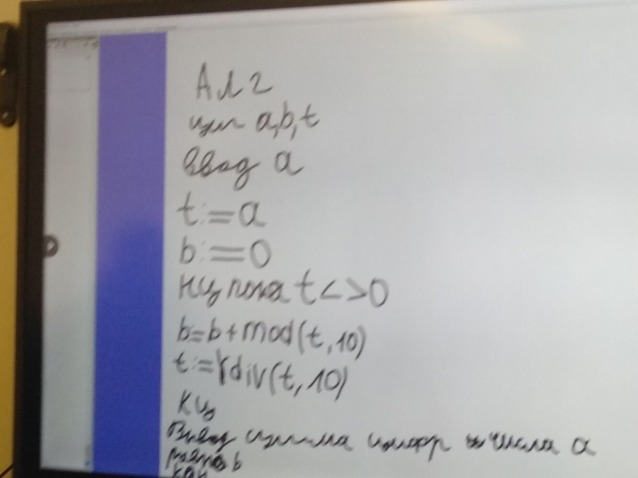 Алг
цел a,b,t
ввод a
t:=a
b:=0
нц пока t<>0
b=b+mod(t,10)
t:=div(t,10)
кц
Вывод сумма цифр числа a
равна b
кон